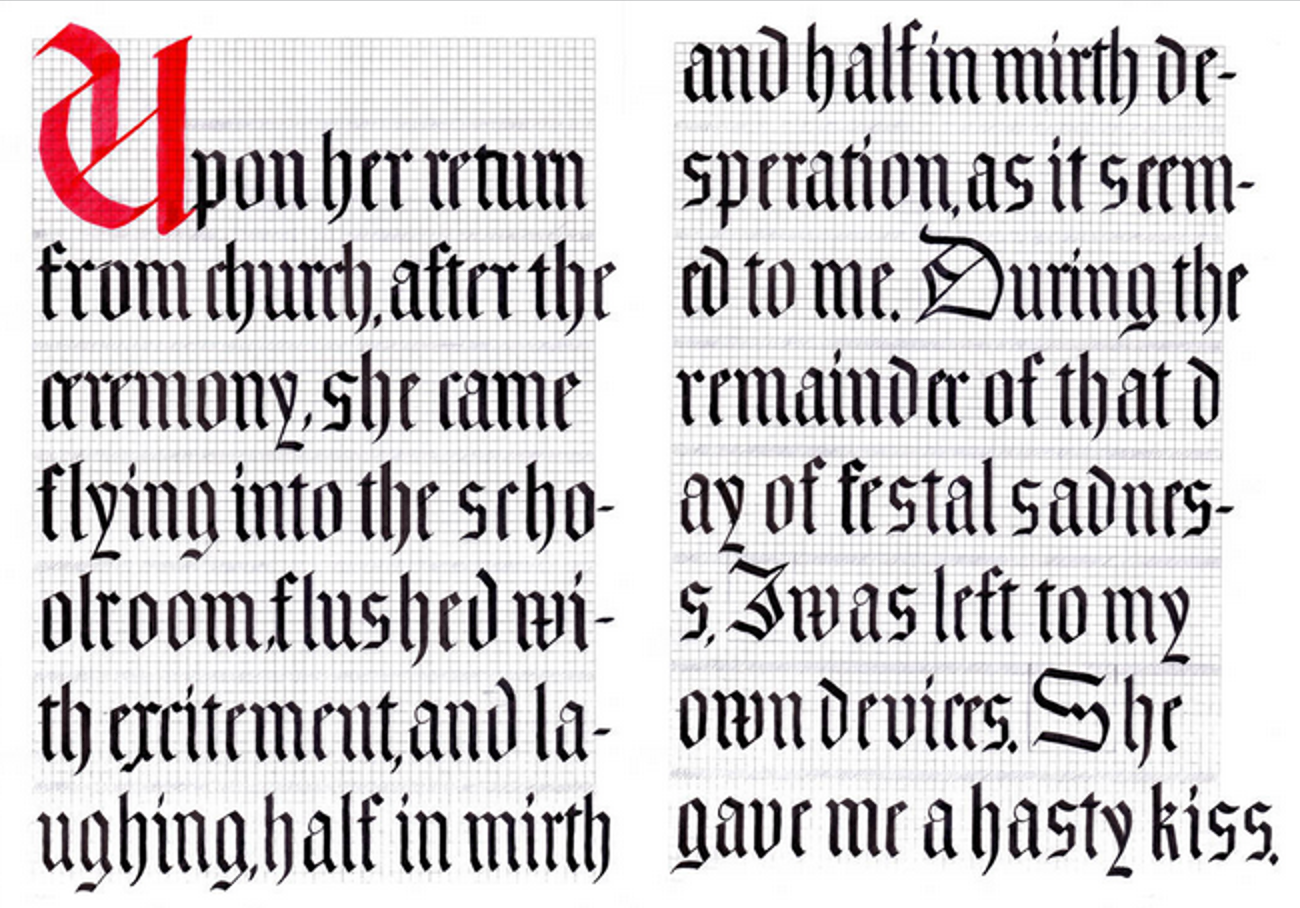 Upon her return
from church, after the
ceremony, she came
flying into the scho-
olroom, flushed wi-
th excitement, and la-
ughing, half in mirth
and half in mirth de-
speration, as it seem-
ed to me. During the
remainder of that d
ay of festal sadnes-
s, I was left to my
own devices. She
gave me a hasty kiss.